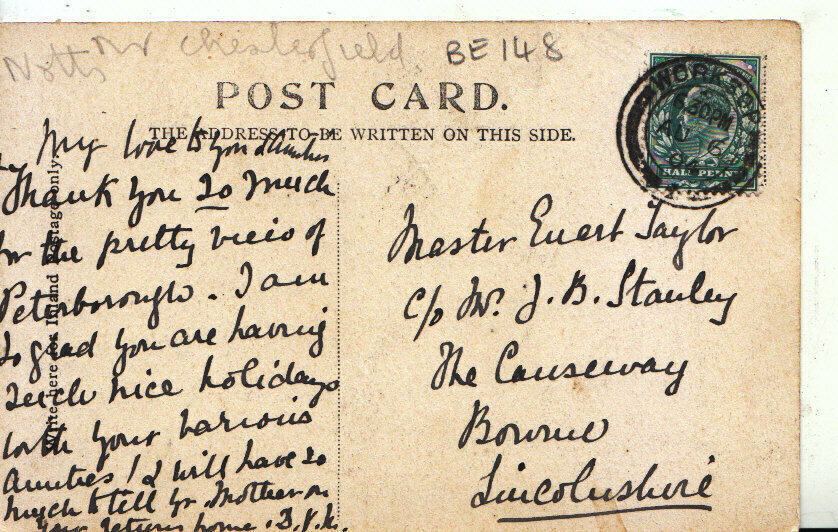 Notts nr Chesterfield.
BE148
POST CARD.
THE ADDRESS TO BE WRITTEN ON THIS SIDE.
Write here for Inland Postage only.
My love to you &
Thank you so much
for the pretty view of
Peterborough. I am
so glad you are having
such nice holidays
with your various
Aunties! & will have so
much to tell yr. Mother on
your return home.
Master Ewart Taylor
c/o Mr. J. B. Stanley
The Causeway
Bourne
Lincolnshire
WORKSOP
6.30PM
AU 6
HALFPENNY